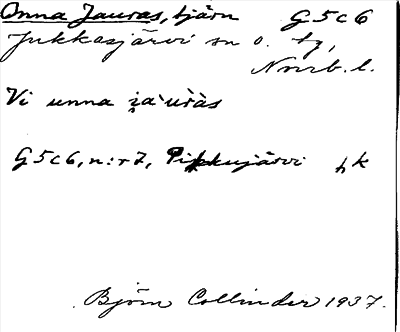 Onna Jauras, tjärn G5c6
Jukkasjärvi sn o. tg,
Nrrb. l.
Vi unna i̯a`uràs
G5c6, n:r 7, Pikkujärvi
Björn Collinder 1937.